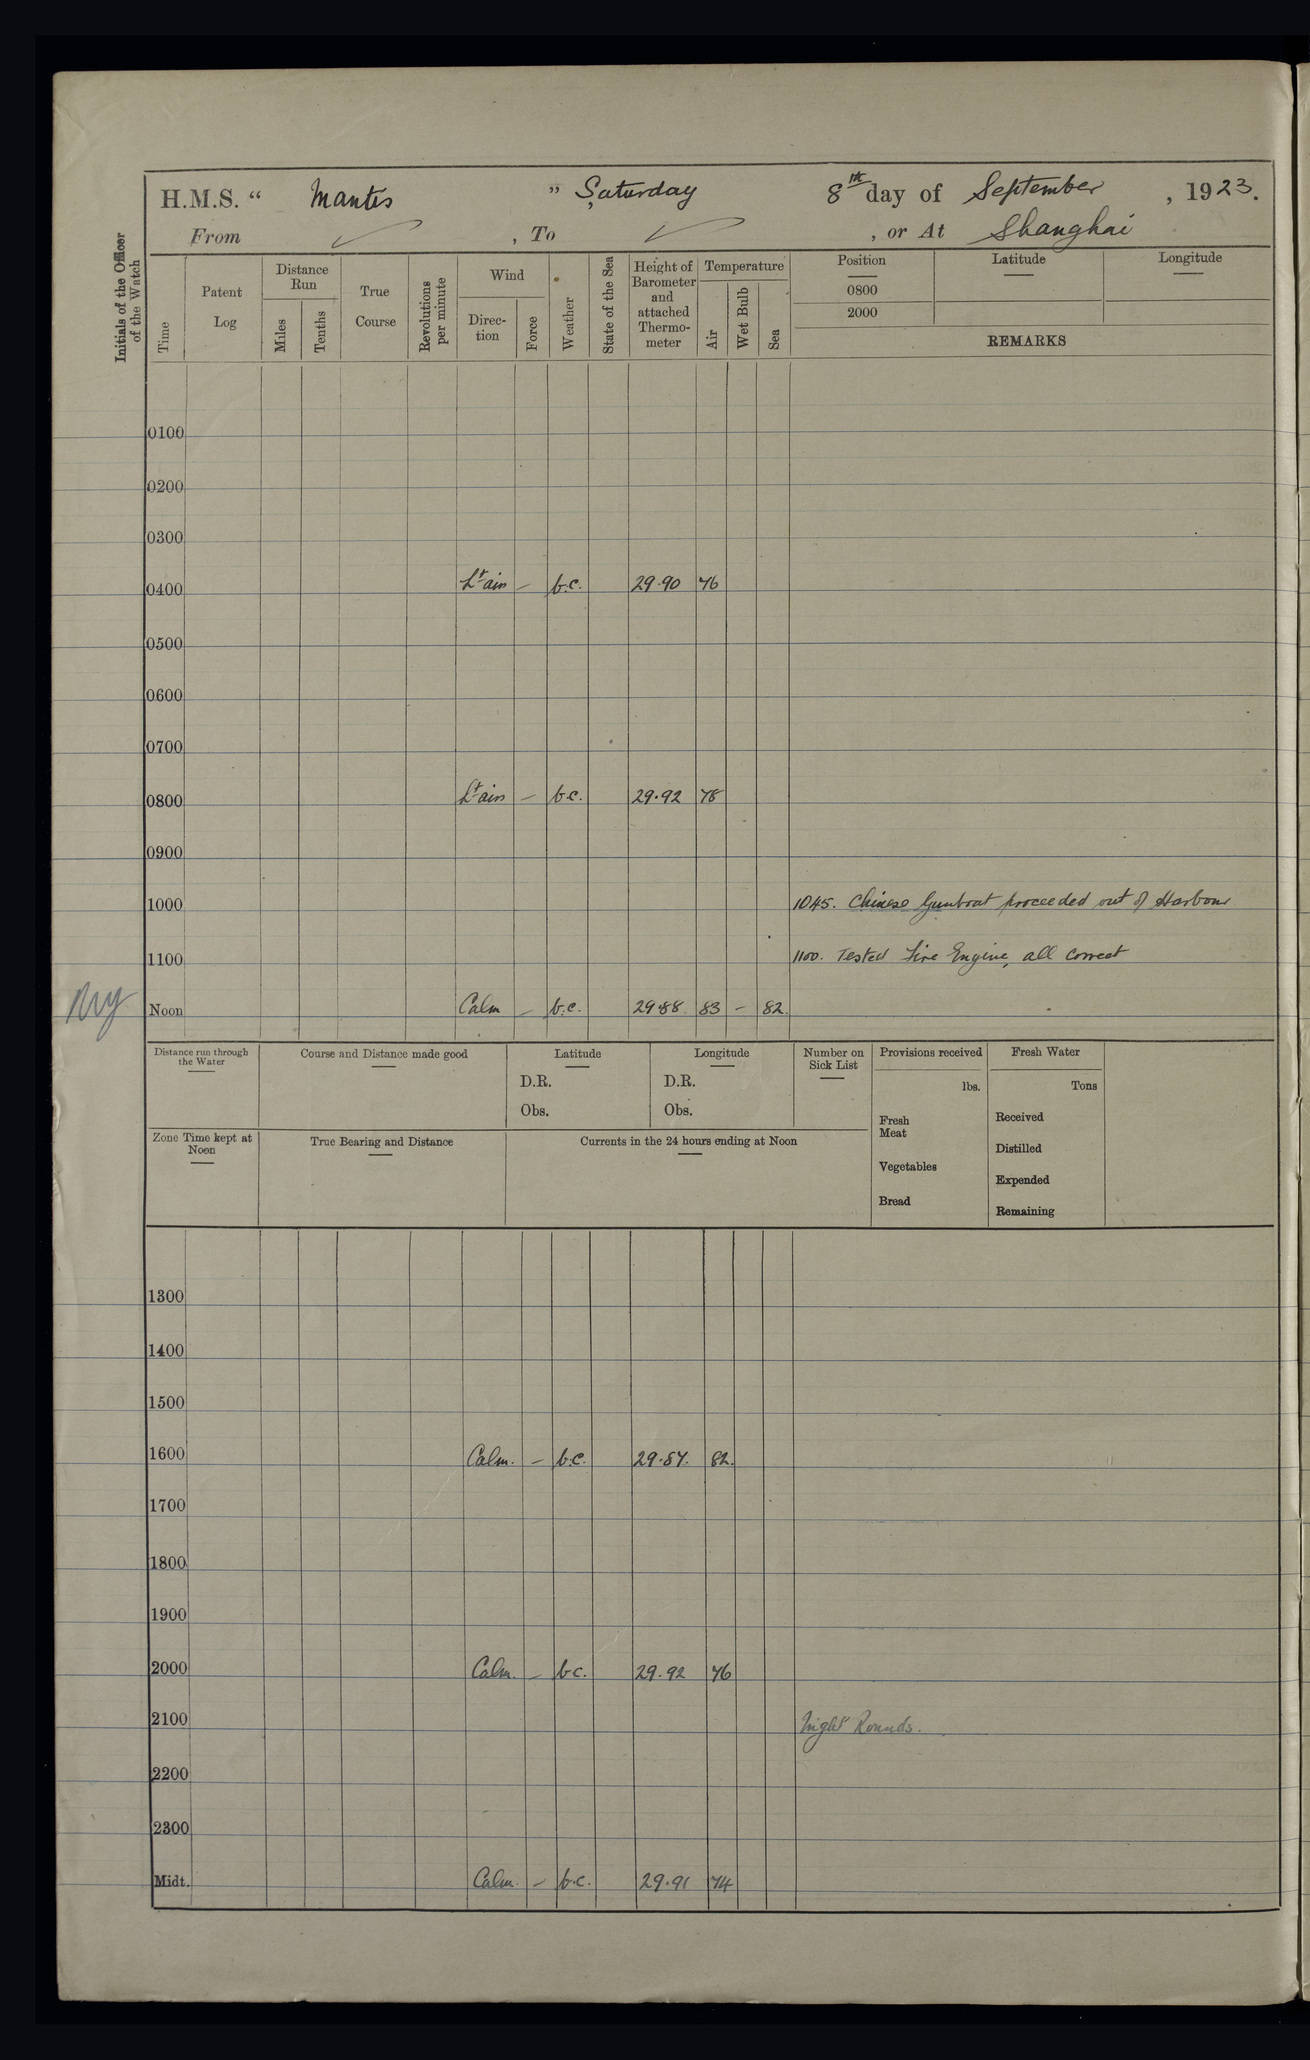 H.M.S. “ Mantis ” Saturday 8th day of September , 1923.
From ✓ , To ✓ , or At Shanghai
Initials of the Officer of the Watch
Time
Patent Log
Distance Run
Miles
Tenths
True Course
Revolutions per minute
Wind
Direc-tion
Force
Weather
State of the Sea
Height of Barometer and attached Thermo-meter
Temperature
Air
Wet Bulb
Sea
Position Latitude Longitude
0800
2000
REMARKS
0100
0200
0300
0400 Lt airs — b.c. 29.90 76
0500
0600
0700
0800 Lt airs — b.c. 29.92 78
0900
1000 1045. Chinese Gunboat proceeded out of Harbour
1100 1100. Tested Fire Engine, all correct
Noon Calm — b.c. 29.88 83 — 82
Distance run through the Water
Course and Distance made good
Latitude
D.R.
Obs.
Longitude
D.R.
Obs.
Number on Sick List
Provisions received
lbs.
Fresh Meat
Vegetables
Bread
Fresh Water
Tons
Received
Distilled
Expended
Remaining
Zone Time kept at Noon
True Bearing and Distance
Currents in the 24 hours ending at Noon
1300
1400
1500
1600 Calm. — b.c. 29.87. 82.
1700
1800
1900
2000 Calm. — b.c. 29.92 76
2100 Night Rounds.
2200
2300
Midt. Calm. — b.c. 29.91 74